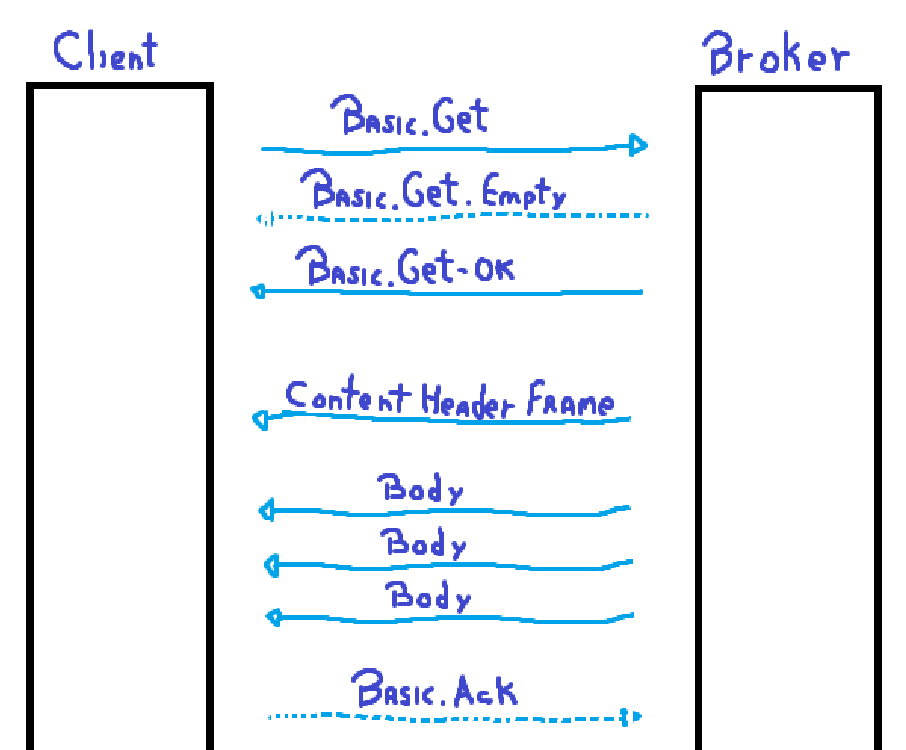 Client
Broker
Basic.Get
Basic.Get.Empty
Basic.Get-OK
Content Header Frame
Body
Body
Body
Basic.Ack